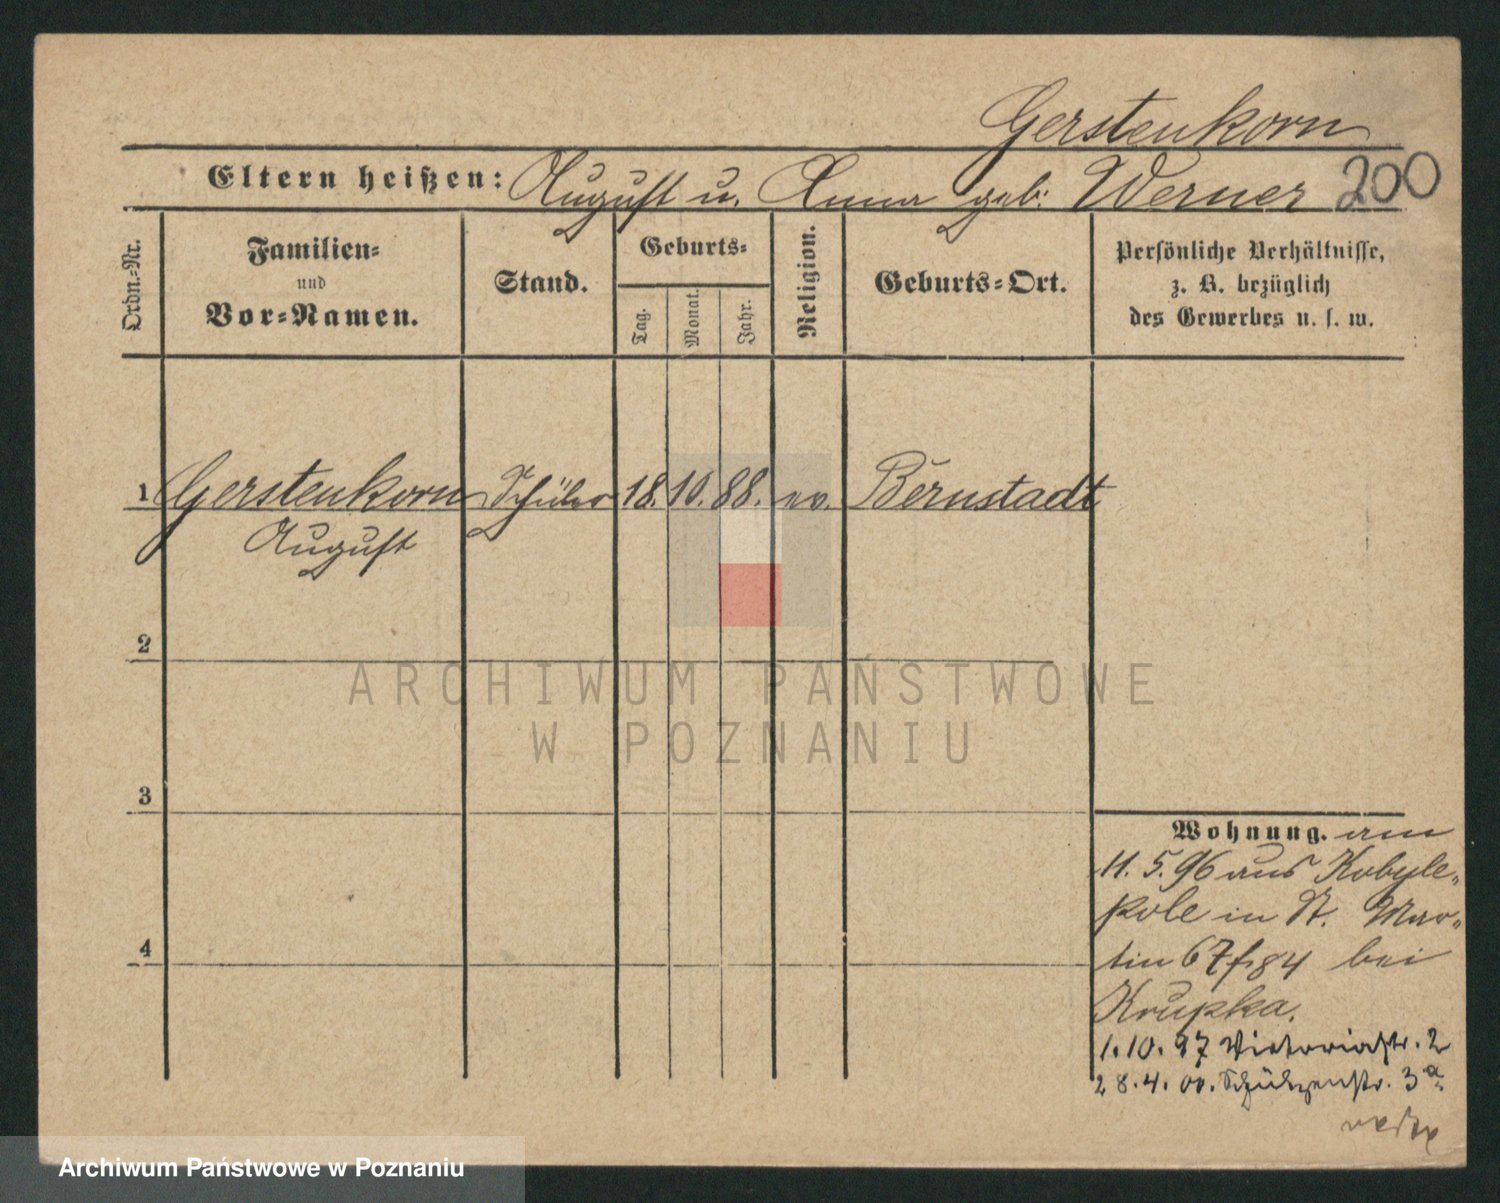 Gerstenkorn
Eltern heißen: August u. Anna geb: Werner 200
Ordn.-Nr.
Familien-
und
Vor-Namen.
Stand.
Geburts-
Tag.
Monat.
Jahr.
Religion.
Geburts-Ort.
Persönliche Verhältnisse,
z. B. bezüglich
des Gewerbes u. s. w.
1 Gerstenkorn Schüler 18. 10. 88. ev. Bernstadt
August
2
ARCHIWUM PAŃSTWOWE
W POZNANIU
3
Wohnung. am
11. 5. 96 aus Kobyle-
pole in St. Mar-
4
tin 67/84 bei
Krupka.
1. 10. 97 Victoriastr. 2
28. 4. 00. Schützenstr. 3a
Archiwum Państwowe w Poznaniu